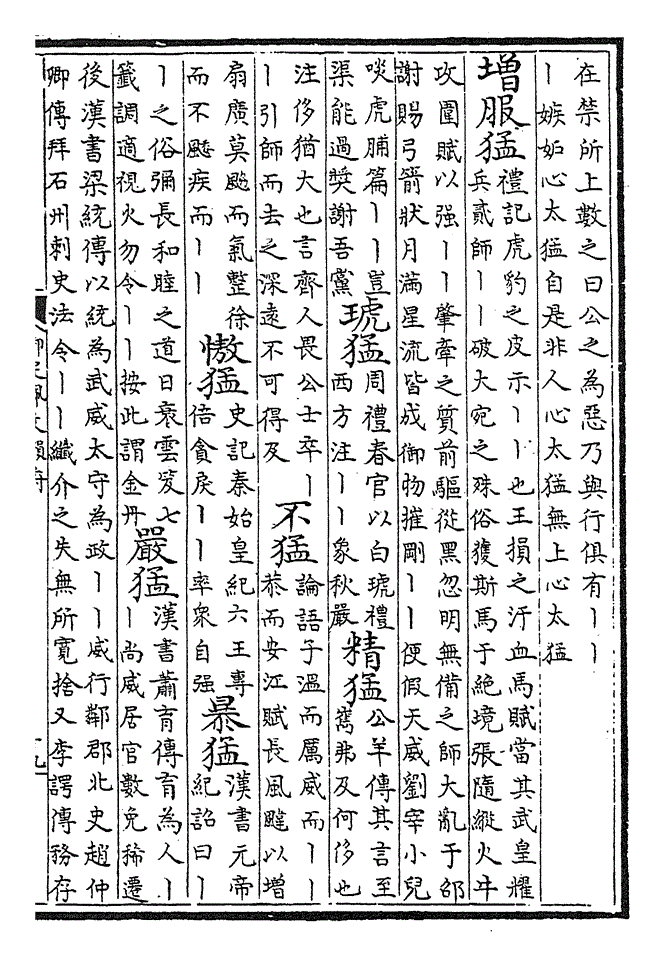 在禁所上數之曰公之為惡乃與行俱有丨丨
丨嫉妬心太猛自是非人心太猛無上心太猛
增服猛
禮記虎豹之皮示丨丨也王損之汗血馬賦當其武皇耀
兵貳師丨丨破大宛之殊俗獲斯馬于絶境張隨縱火牛
攻圍賦以强丨丨肇牽之質前驅從黑忽明無備之師大亂于邵
謝賜弓箭狀月滿星流皆成御物摧剛丨丨便假天威劉宰小兒
啖虎脯篇丨丨豈
渠能過奬謝吾黨
琥猛
周禮春官以白琥禮
西方注丨丨象秋嚴
精猛
公羊傳其言至
嶲弗及何侈也
注侈猶大也言齊人畏公士卒丨
丨引師而去之深遠不可得及
不猛
論語子溫而厲威而丨丨
恭而安江賦長風以增
扇廣莫颸而氣整徐
而不飈疾而丨丨
慠猛
史記秦始皇紀六王專
倍貪戾丨丨率衆自强
暴猛
漢書元帝
紀詔曰丨
丨之俗彌長和睦之道日衰雲笈七
籤調適視火勿令丨丨按此謂金丹
嚴猛
漢書蕭育傳育為人丨
丨尚威居官數免稀遷
後漢書梁統傳以統為武威太守為政丨丨威行鄰郡北史趙仲
卿傳拜石州刺史法令丨丨纖介之失無所寛捨又李諤傳務存